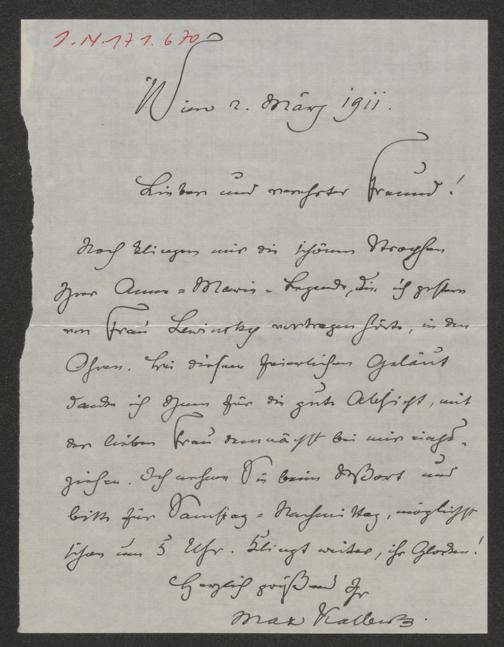 J.N.171.670
Wien 2. März 1911.
Lieber und verehrter Freund!
Noch klingen mir die schönen Strophen
Ihrer Anna-Maria-Legende, die ich gestern
von Frau Lewinsky vortragen hörte, in den
Ohren. Bei diesem feierlichen Geläut
danke ich Ihnen für die gute Absicht, mit
der lieben Frau demnächst bei mir einzu-
ziehen. Ich nehme Sie beim Wort und
bitte für Samstag-Nachmittag, möglichst
schon um 5 Uhr. Klingt weiter, ihr Glocken!
Herzlich grüßend Ihr
Max Kalbeck.